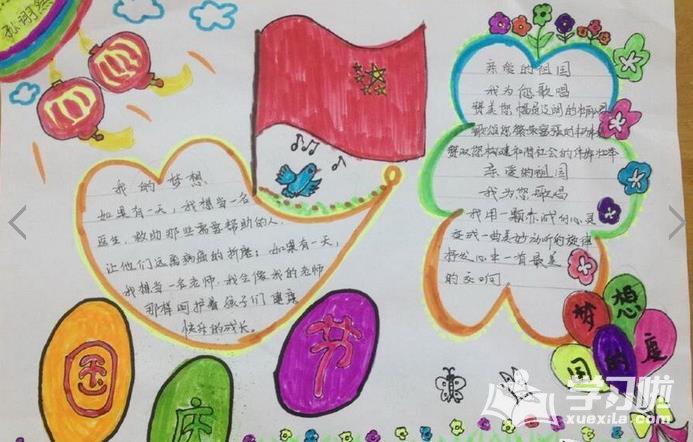 我的梦想
如果有一天，我想当一名
医生，救助那些需要帮助的人，
让他们远离病痛的折磨；如果有一天，
我想当一名老师，我会像我的老师
那样呵护着孩子们健康
快乐的成长。
亲爱的祖国
我为您歌唱
赞美您幅员辽阔的
歌颂您繁荣富强的
赞叹您构建和谐社会的
亲爱的祖国
我为您歌唱
我用一颗赤诚的心灵
变成一曲美妙动听的旋律
心中一首最美
的
国庆节
梦想
国的度
学习啦
xuexila.com